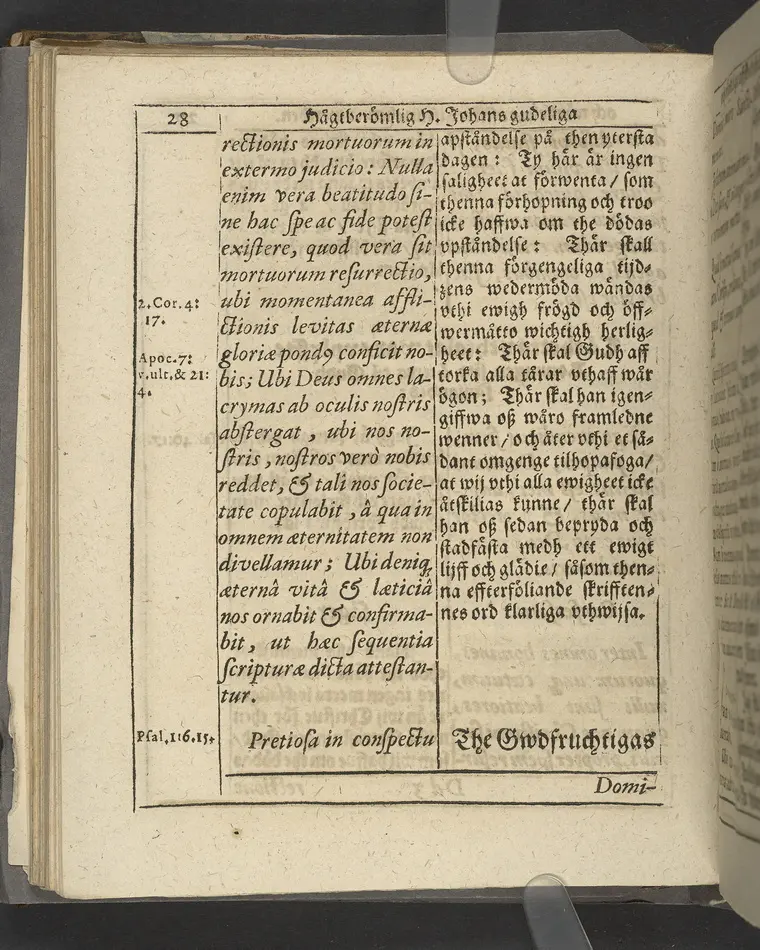 28
Hågtberömlig H. Johans gudeliga
rectionis mortuorum in
extermo judicio: Nulla
enim vera beatitudo si-
ne hac spe ac fide potest
existere, quod vera sit
mortuorum resurrectio,
ubi momentanea affli-
ctionis levitas æternæ
gloriæ pondꝰ conficit no-
bis; Ubi Deus omnes la-
crymas ab oculis nostris
abstergat, ubi nos no-
stris, nostros verò nobis
reddet, & tali nos socie-
tate copulabit, â qua in
omnem æternitatem non
divellamur; Ubi deniq;
æternâ vitâ & læticiâ
nos ornabit & confirma-
bit, ut hæc sequentia
scripturæ dicta attestan-
tur.
Pretiosa in conspectu
2. Cor. 4:
17.
Apoc. 7:
v. ult, & 21:
4.
Psal, 116. 15.
apståndelse på then ytersta
dagen: Ty här är ingen
saligheet at förwenta / som
thenna förhopning och troo
icke haffwa om the dödas
vpståndelse: Thär skall
thenna förgengeliga tijd-
zens wedermöda wändas
vthi ewigh frögd och öff-
wermåtto wichtigh herlig-
heet: Thär skal Gudh aff
torka alla tårar vthaff wår
ögon; Thär skal han igen-
giffwa oß wåro framledne
wenner / och åter vthi et så-
dant omgenge tilhopafoga /
at wij vthi alla ewigheet icke
åtskilias kunne / thär skal
han oß sedan bepryda och
stadfästa medh ett ewigt
lijff och glädie / såsom then-
na effterföliande skrifften-
nes ord klarliga vthwijsa.
The Gwdfruchtigas
Domi-